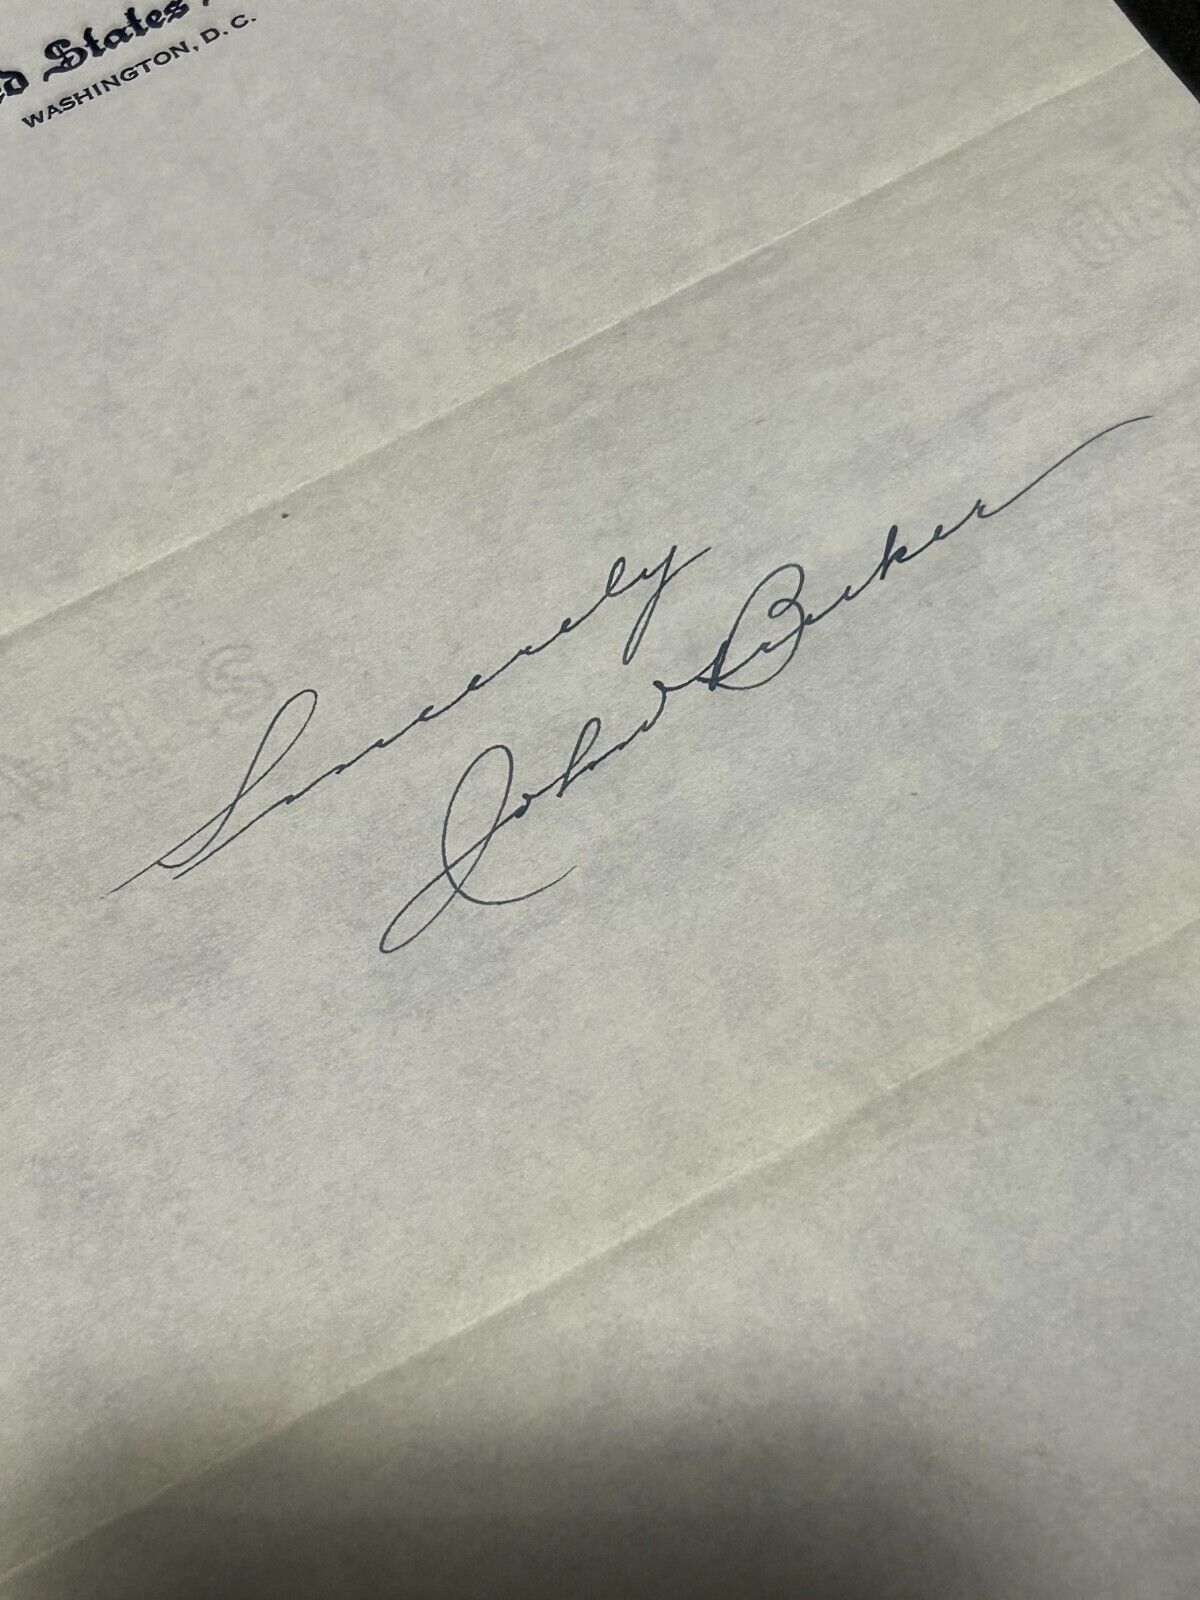 ed States
WASHINGTON, D.C.
Sincerely
John Bricker